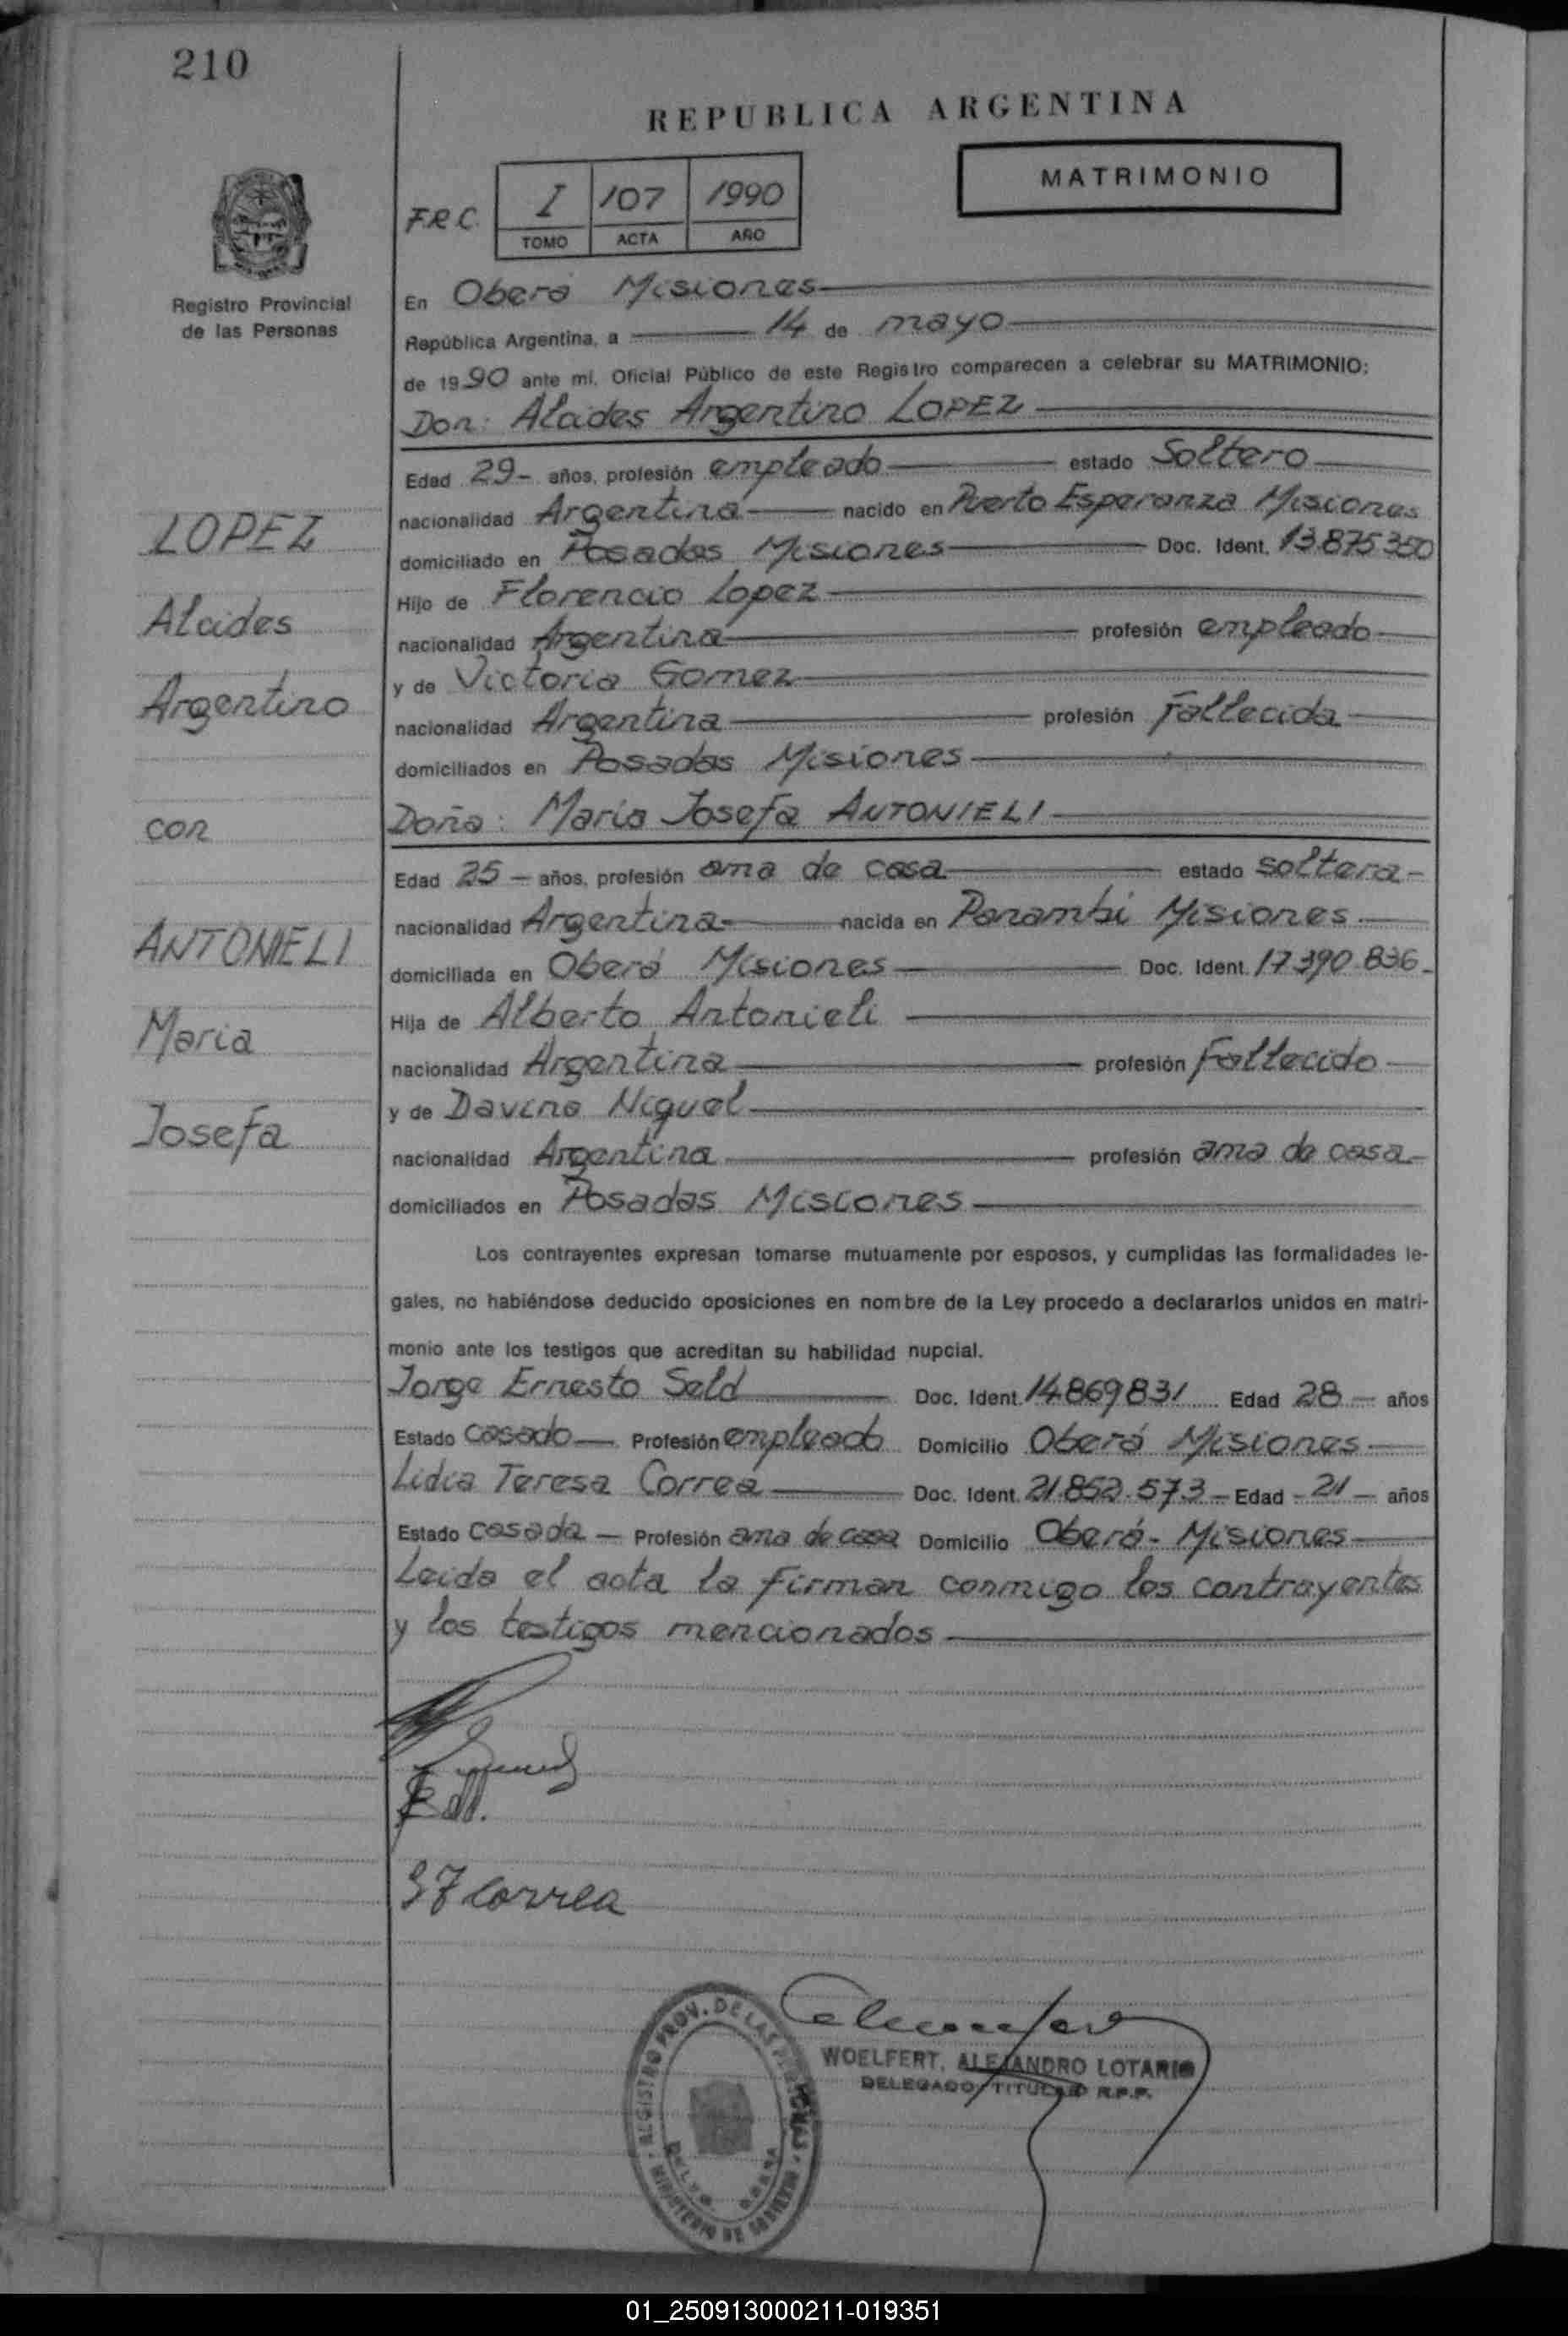 210
REPUBLICA ARGENTINA
MATRIMONIO
F.R.C. I 107 1990
TOMO ACTA AÑO
Registro Provincial
de las Personas
En Oberá Misiones
República Argentina, a 14 de mayo
de 1990 ante mi, Oficial Público de este Registro comparecen a celebrar su MATRIMONIO:
Don: Alcides Argentino LOPEZ
Edad 29 - años, profesión empleado estado Soltero
nacionalidad Argentina nacido en Puerto Esperanza Misiones
domiciliado en Posadas Misiones Doc. Ident. 13.875.350
Hijo de Florencio Lopez
nacionalidad Argentina profesión empleado
y de Victoria Gomez
nacionalidad Argentina profesión Fallecida
domiciliados en Posadas Misiones
Doña: Maria Josefa ANTONIELI
Edad 25 - años, profesión ama de casa estado soltera -
nacionalidad Argentina nacida en Panambi Misiones
domiciliada en Oberá Misiones Doc. Ident. 17.390.836 -
Hija de Alberto Antonieli
nacionalidad Argentina profesión Fallecido
y de Davina Niguel
nacionalidad Argentina profesión ama de casa -
domiciliados en Posadas Misiones
LOPEZ
Alcides
Argentino
con
ANTONIELI
Maria
Josefa
Los contrayentes expresan tomarse mutuamente por esposos, y cumplidas las formalidades le-
gales, no habiéndose deducido oposiciones en nombre de la Ley procedo a declararlos unidos en matri-
monio ante los testigos que acreditan su habilidad nupcial.
Jorge Ernesto Seld Doc. Ident. 14.869831 Edad 28 - años
Estado casado Profesión empleado Domicilio Oberá Misiones
Lidia Teresa Correa Doc. Ident. 21.852.573 - Edad - 21 - años
Estado casada - Profesión ama de casa Domicilio Oberá - Misiones
Leida el acta la firman conmigo los contrayentes
y los testigos mencionados
Correa
WOELFERT, ALEJANDRO LOTARIO
DELEGADO TITULAR R.P.P.
REGISTRO PROV. DE LAS PERSONAS
MINISTERIO DE GOBIERNO
01_250913000211-019351